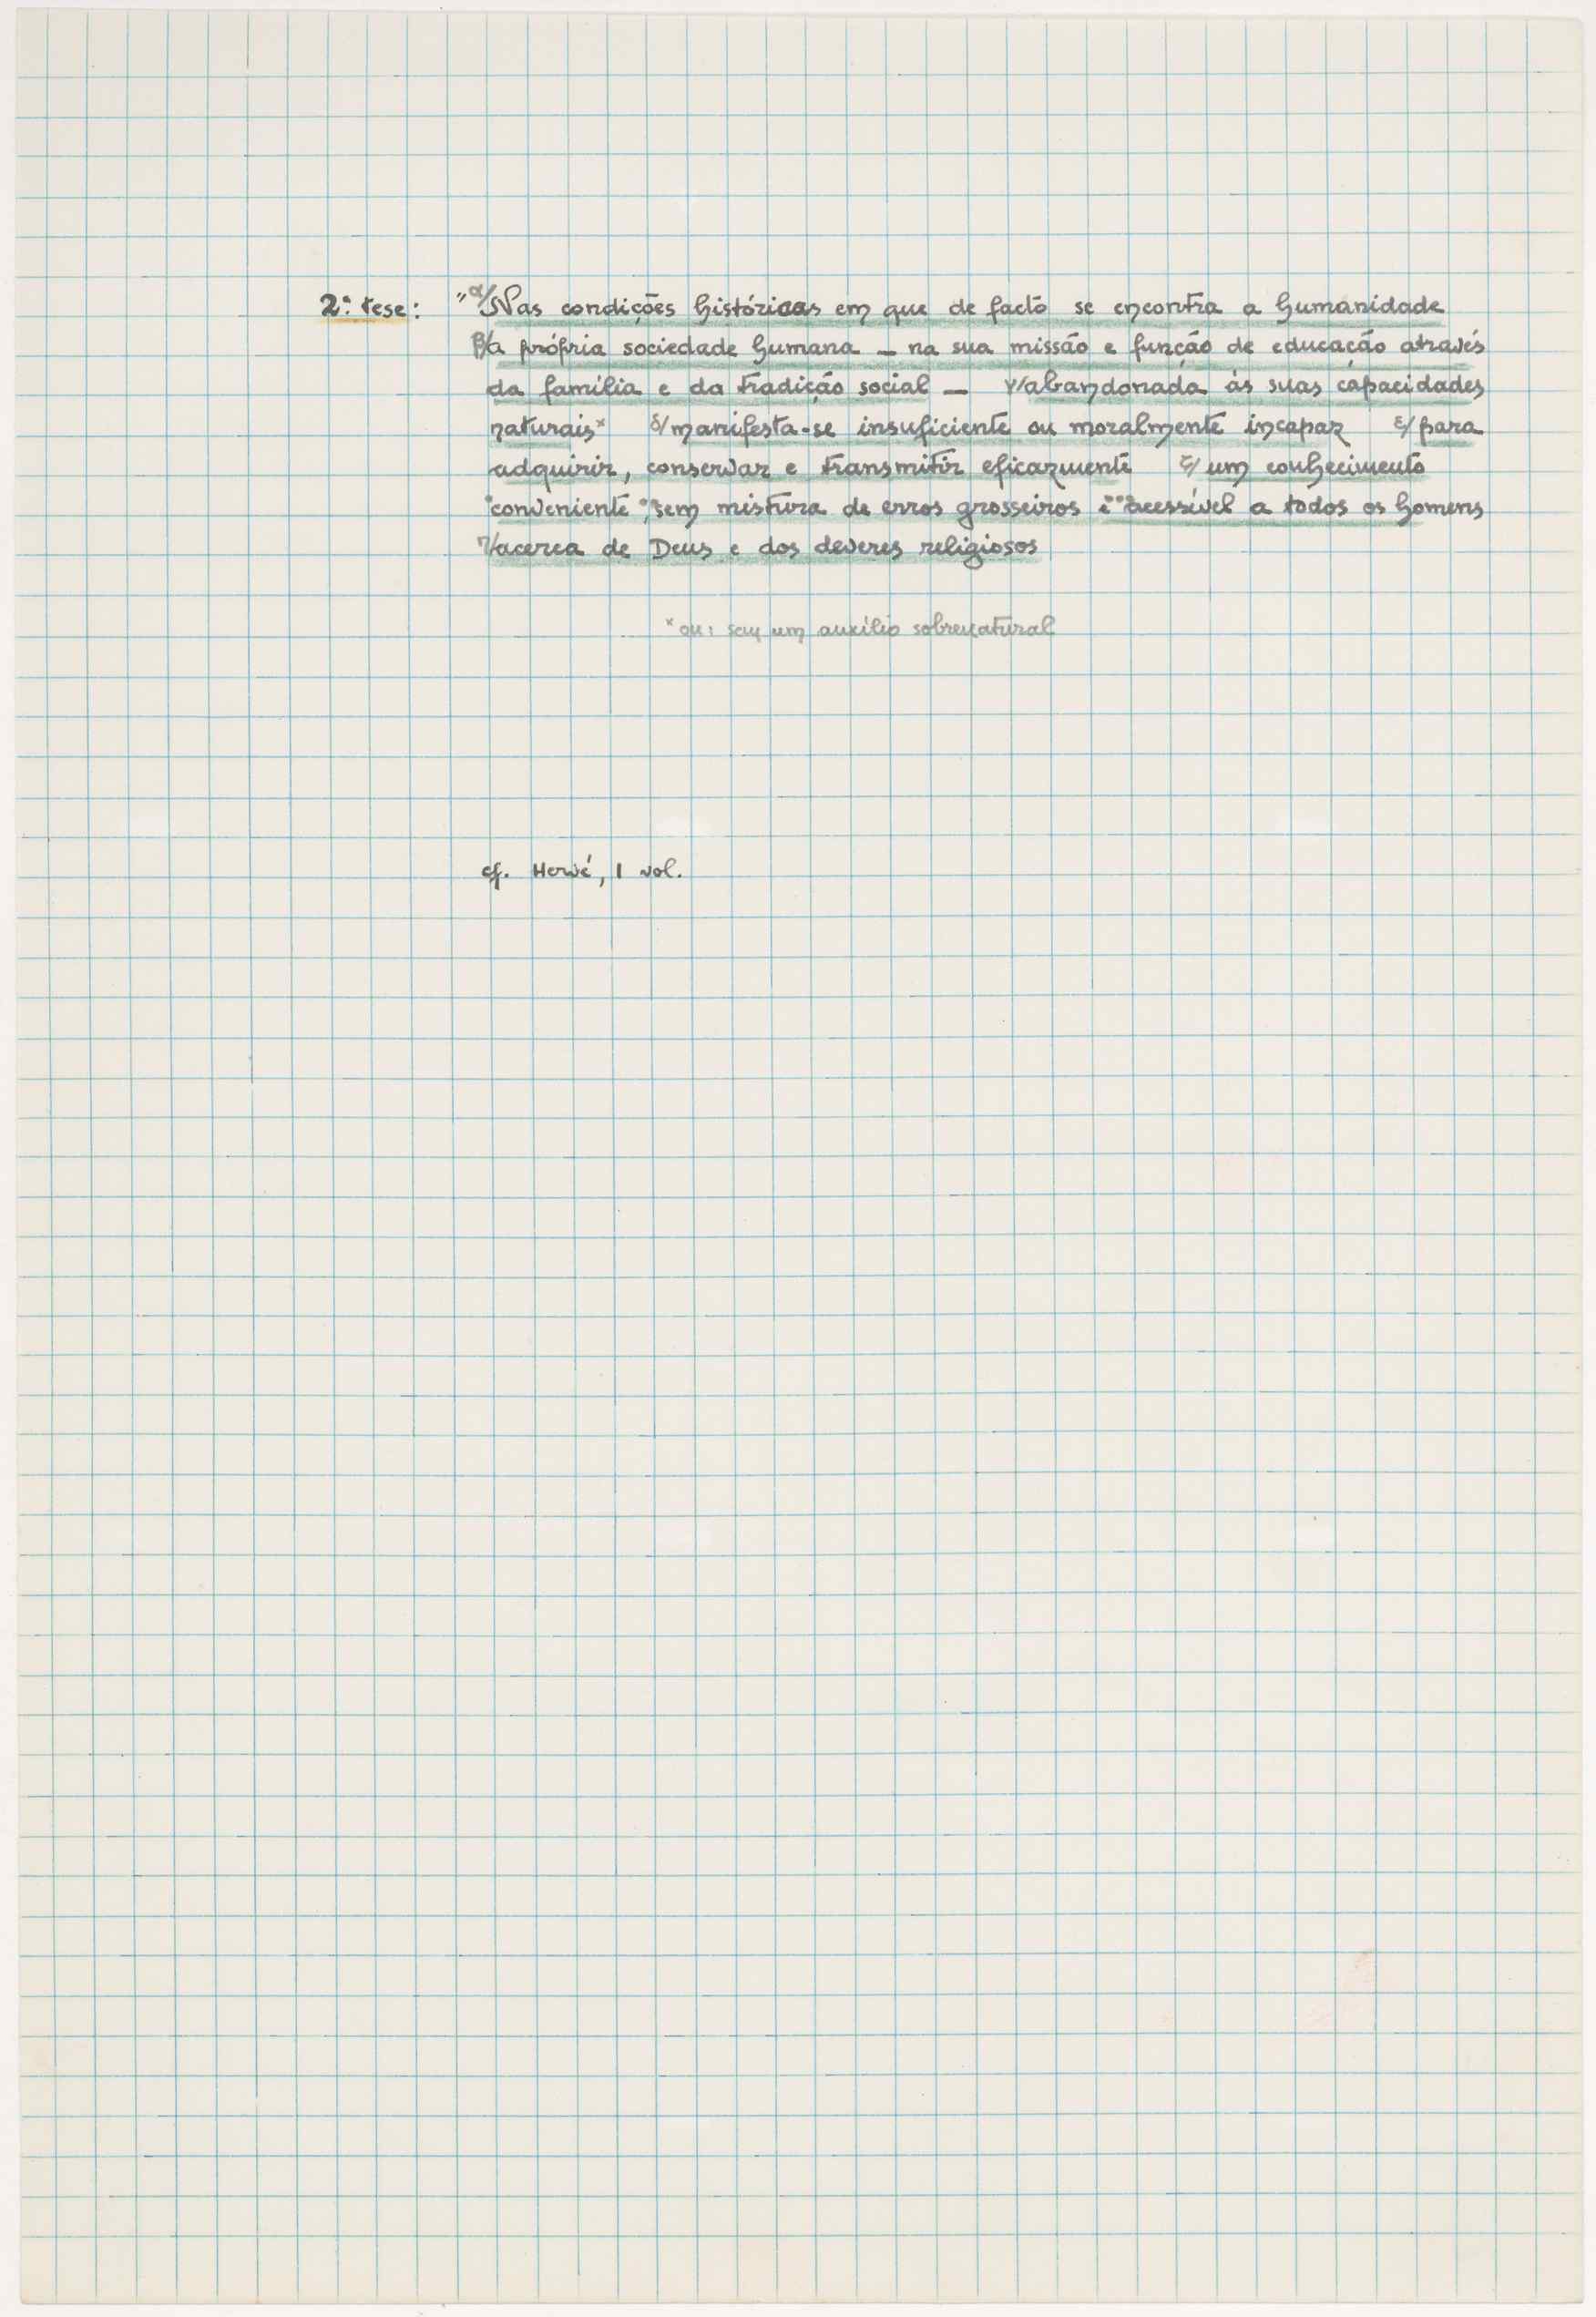 2.ª tese: "α/Nas condições históricas em que de facto se encontra a humanidade
β/a própria sociedade humana — na sua missão e função de educação através
da família e da tradição social — γ/abandonada às suas capacidades
naturais* δ/manifesta-se insuficiente ou moralmente incapaz ε/para
adquirir, conservar e transmitir eficazmente ζ/um conhecimento
°conveniente, °°sem mistura de erros grosseiros e °°°acessível a todos os homens
η/acerca de Deus e dos deveres religiosos
*ou: sem um auxílio sobrenatural
cf. Hervé, I vol.